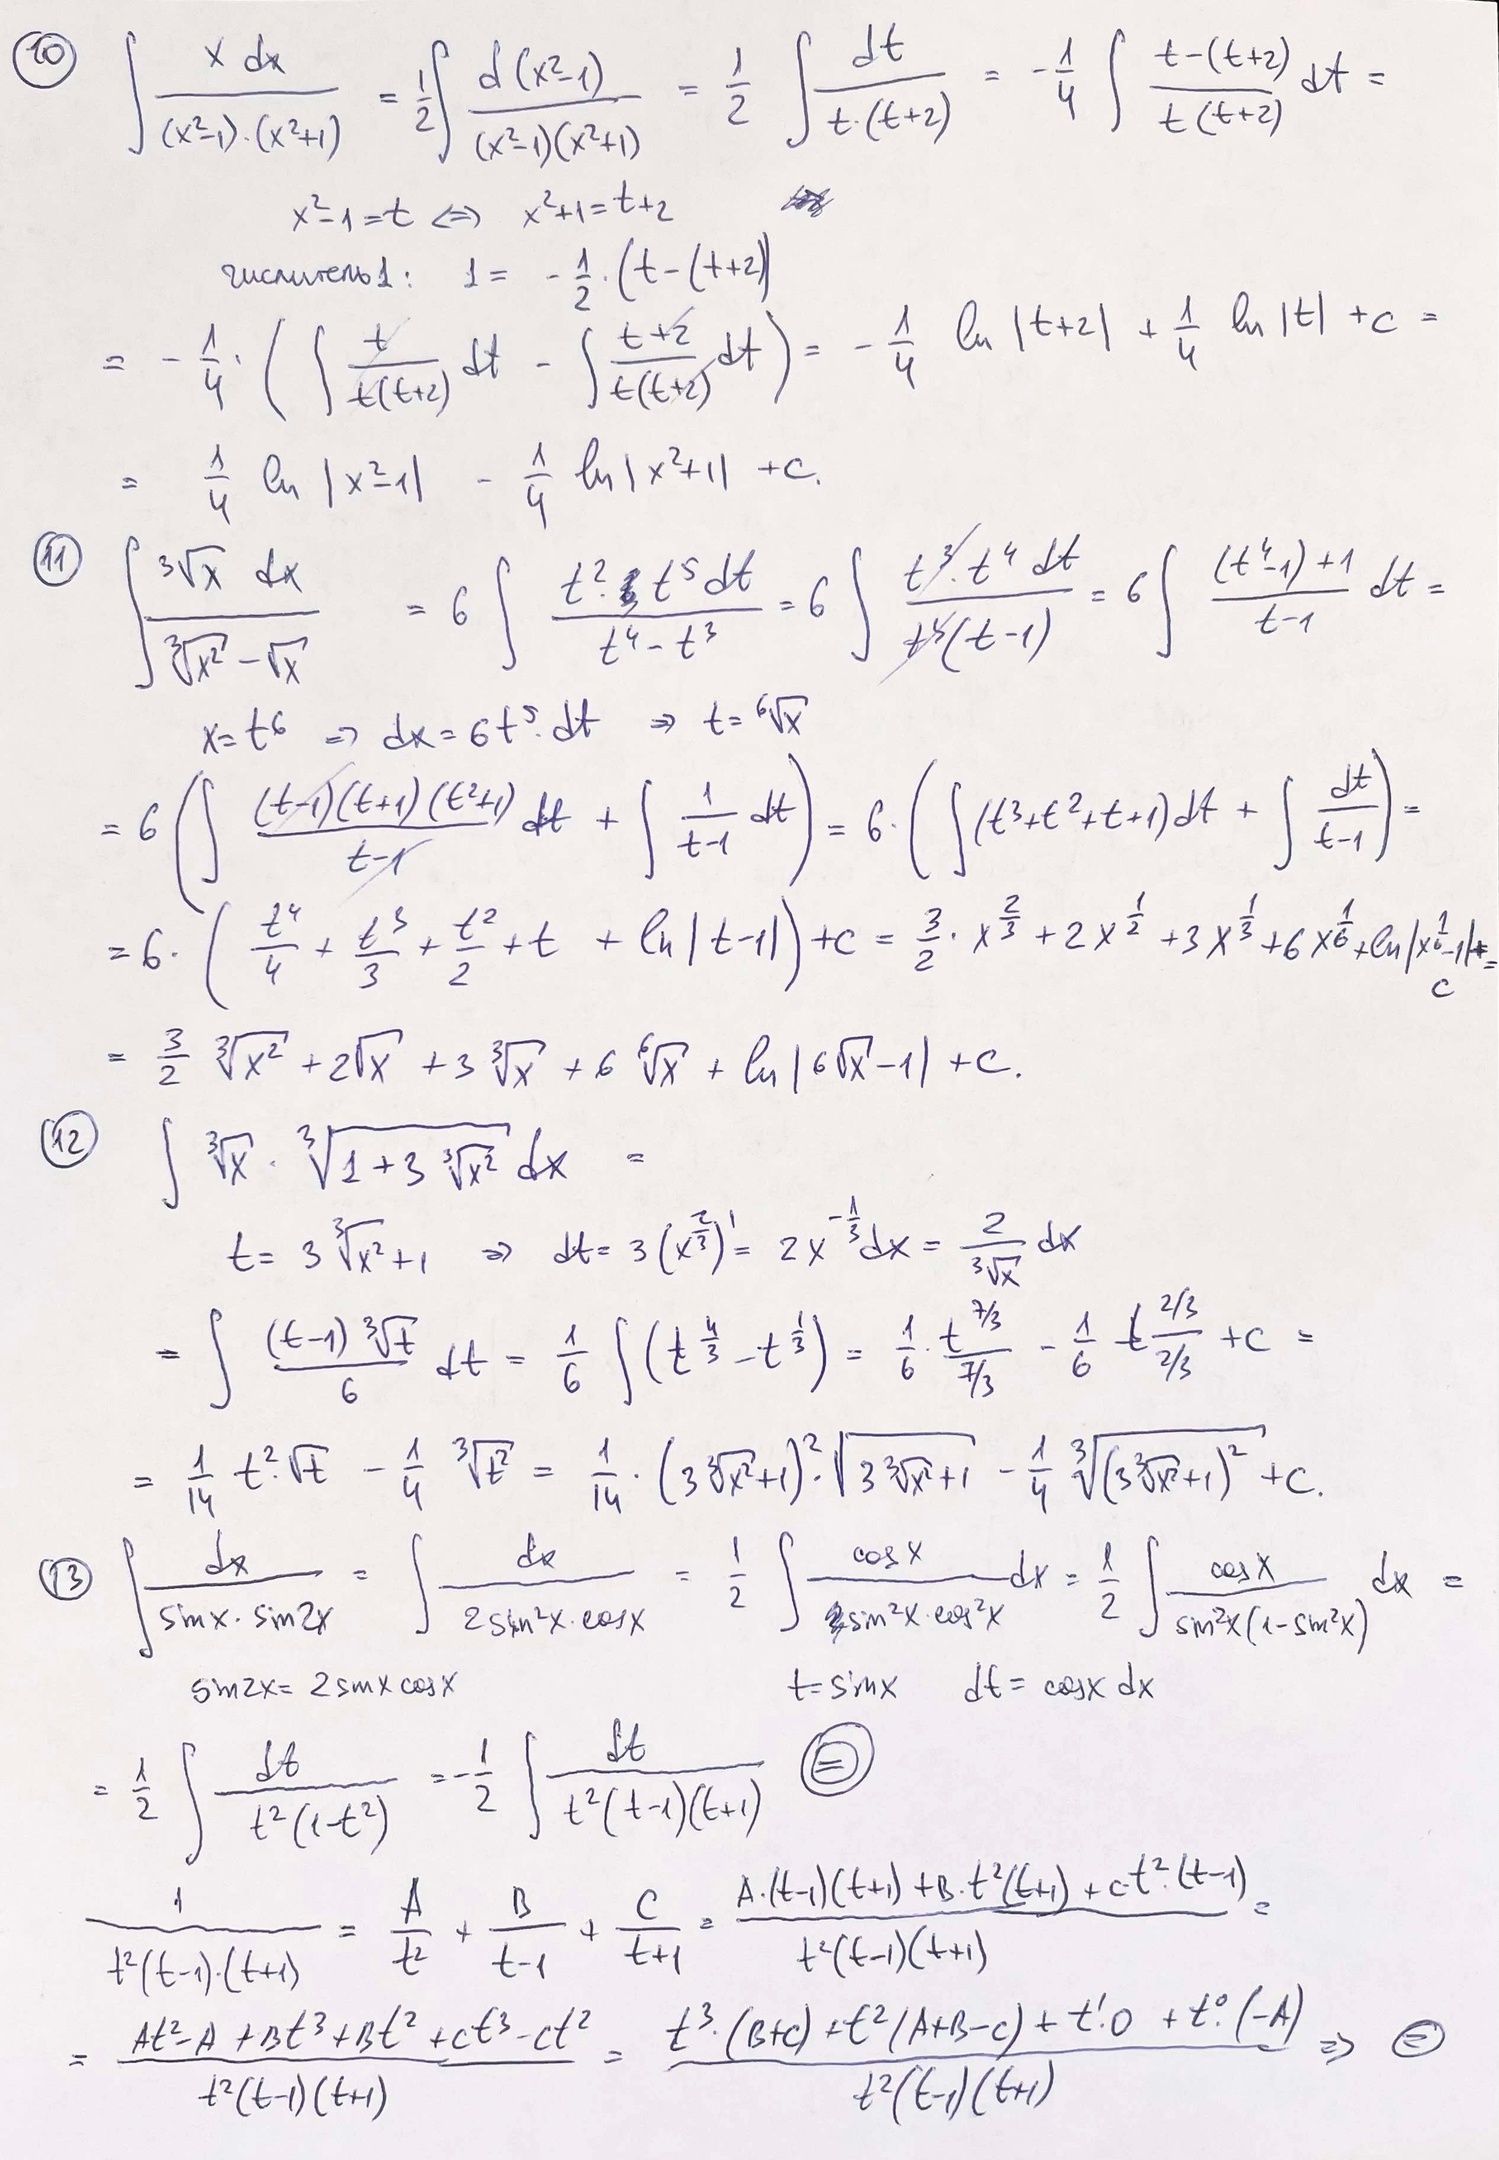 10 ∫ x dx / (x²-1)·(x²+1) = 1/2 ∫ d(x²-1) / (x²-1)(x²+1) = 1/2 ∫ dt / t·(t+2) = -1/4 ∫ t-(t+2) / t(t+2) dt =
x²-1=t ⇔ x²+1=t+2
числитель 1: 1 = -1/2·(t-(t+2))
= -1/4·(∫ t / t(t+2) dt - ∫ t+2 / t(t+2) dt) = -1/4 ln|t+2| + 1/4 ln|t| + c =
= 1/4 ln|x²-1| - 1/4 ln|x²+1| + c.
11 ∫ ³√x dx / ³√x² - √x = 6 ∫ t²· t⁵ dt / t⁴ - t³ = 6 ∫ t³·t⁴ dt / t³(t-1) = 6 ∫ (t⁴-1)+1 / t-1 dt =
x=t⁶ ⇒ dx=6t⁵·dt ⇒ t=⁶√x
= 6 (∫ (t-1)(t+1)(t²+1) / t-1 dt + ∫ 1 / t-1 dt) = 6·(∫(t³+t²+t+1)dt + ∫ dt / t-1) =
= 6·(t⁴/4 + t³/3 + t²/2 + t + ln|t-1|) + c = 3/2·x^2/3 + 2x^1/2 + 3x^1/3 + 6x^1/6 + ln|x^1/6-1| + c =
= 3/2 ³√x² + 2√x + 3 ³√x + 6 ⁶√x + ln|6√x-1| + c.
12 ∫ ³√x · ³√(1+3 ³√x²) dx =
t = 3 ³√x² + 1 ⇒ dt = 3(x^2/3)' = 2x^-1/3 dx = 2 / ³√x dx
= ∫ (t-1) ³√t / 6 dt = 1/6 ∫(t^4/3 - t^1/3) = 1/6 · t^7/3 / 7/3 - 1/6 t^2/3 / 2/3 + c =
= 1/14 t²·√t - 1/4 ³√t² = 1/14 · (3 ³√x²+1)²·√(3 ³√x²+1) - 1/4 ³√((3 ³√x²+1)²) + c.
13 ∫ dx / sinx·sin2x = ∫ dx / 2sin²x·cosx = 1/2 ∫ cosx / sin²x·cos²x dx = 1/2 ∫ cosx / sin²x(1-sin²x) dx =
sin2x = 2sinx cosx t=sinx dt = cosx dx
= 1/2 ∫ dt / t²(1-t²) = -1/2 ∫ dt / t²(t-1)(t+1) =
1 / t²(t-1)·(t+1) = A/t² + B/t-1 + C/t+1 = A·(t-1)(t+1)+B·t²(t+1)+c·t²·(t-1) / t²(t-1)(t+1) =
= At²-A+Bt³+Bt²+ct³-ct² / t²(t-1)(t+1) = t³·(B+c)+t²(A+B-c)+t¹·0+t⁰·(-A) / t²(t-1)(t+1) ⇒ =